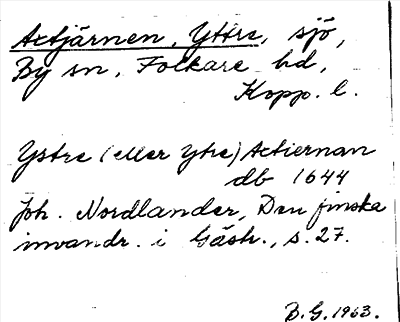 Actjärnen, Yttre, sjö,
By sn, Folkare hd,
Kopp. l.
Ystre (eller Ytre) Actiernan
db 1644
Joh. Nordlander, Den finska
invandr. i Gästr., s. 27.
B.G. 1963.